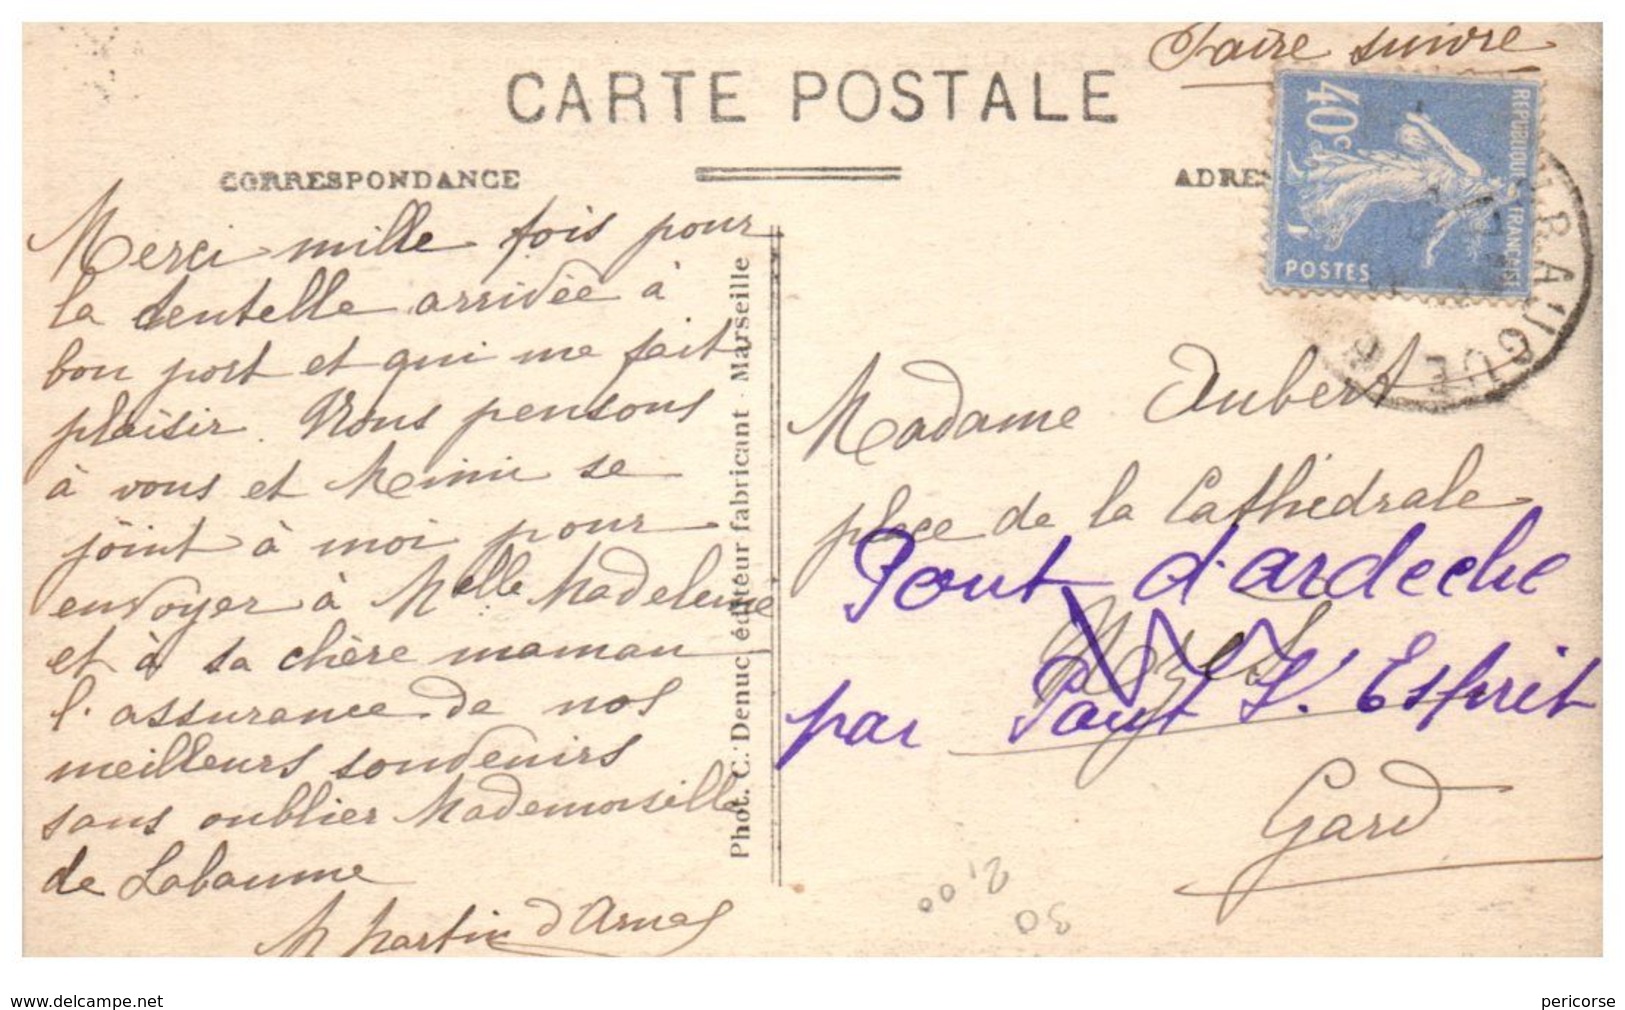 Faire suivre
CARTE POSTALE
CORRESPONDANCE
ADRES
REPUBLIQUE FRANÇAISE
40c
POSTES
Merci mille fois pour
la dentelle arrivée à
bon port et qui me fait
plaisir. Nous pensons
à vous et Mimi se
joint à moi pour
envoyer à Melle Madeleine
et à sa chère maman
l'assurance de nos
meilleurs souvenirs
sans oublier Mademoiselle
de Labaume
M Martin d'Arnas
Phot. C. Denuc, éditeur fabricant - Marseille
Madame Aubert
place de la Cathédrale
Pont d'ardeche
par Pont St. Esprit
Gard
2,00
30
www.delcampe.net
pericorse